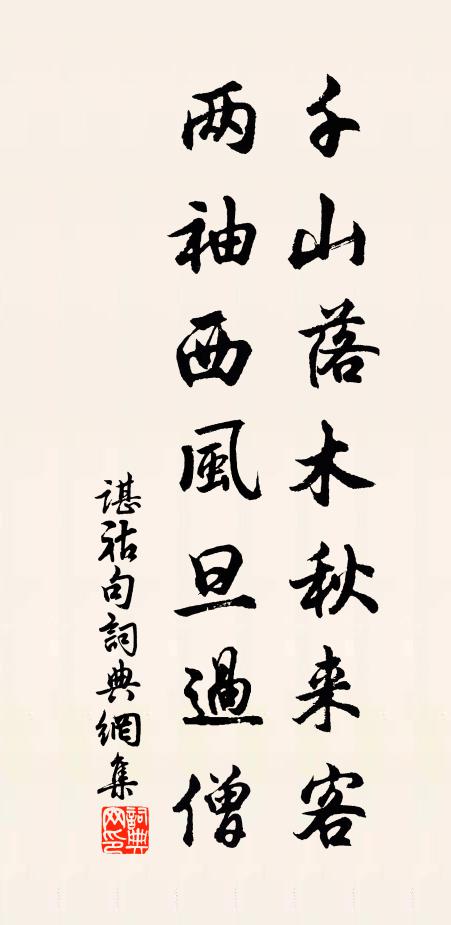 千山落木秋来客
两袖西風旦過僧
諶祜句詞典網集
詞典网印